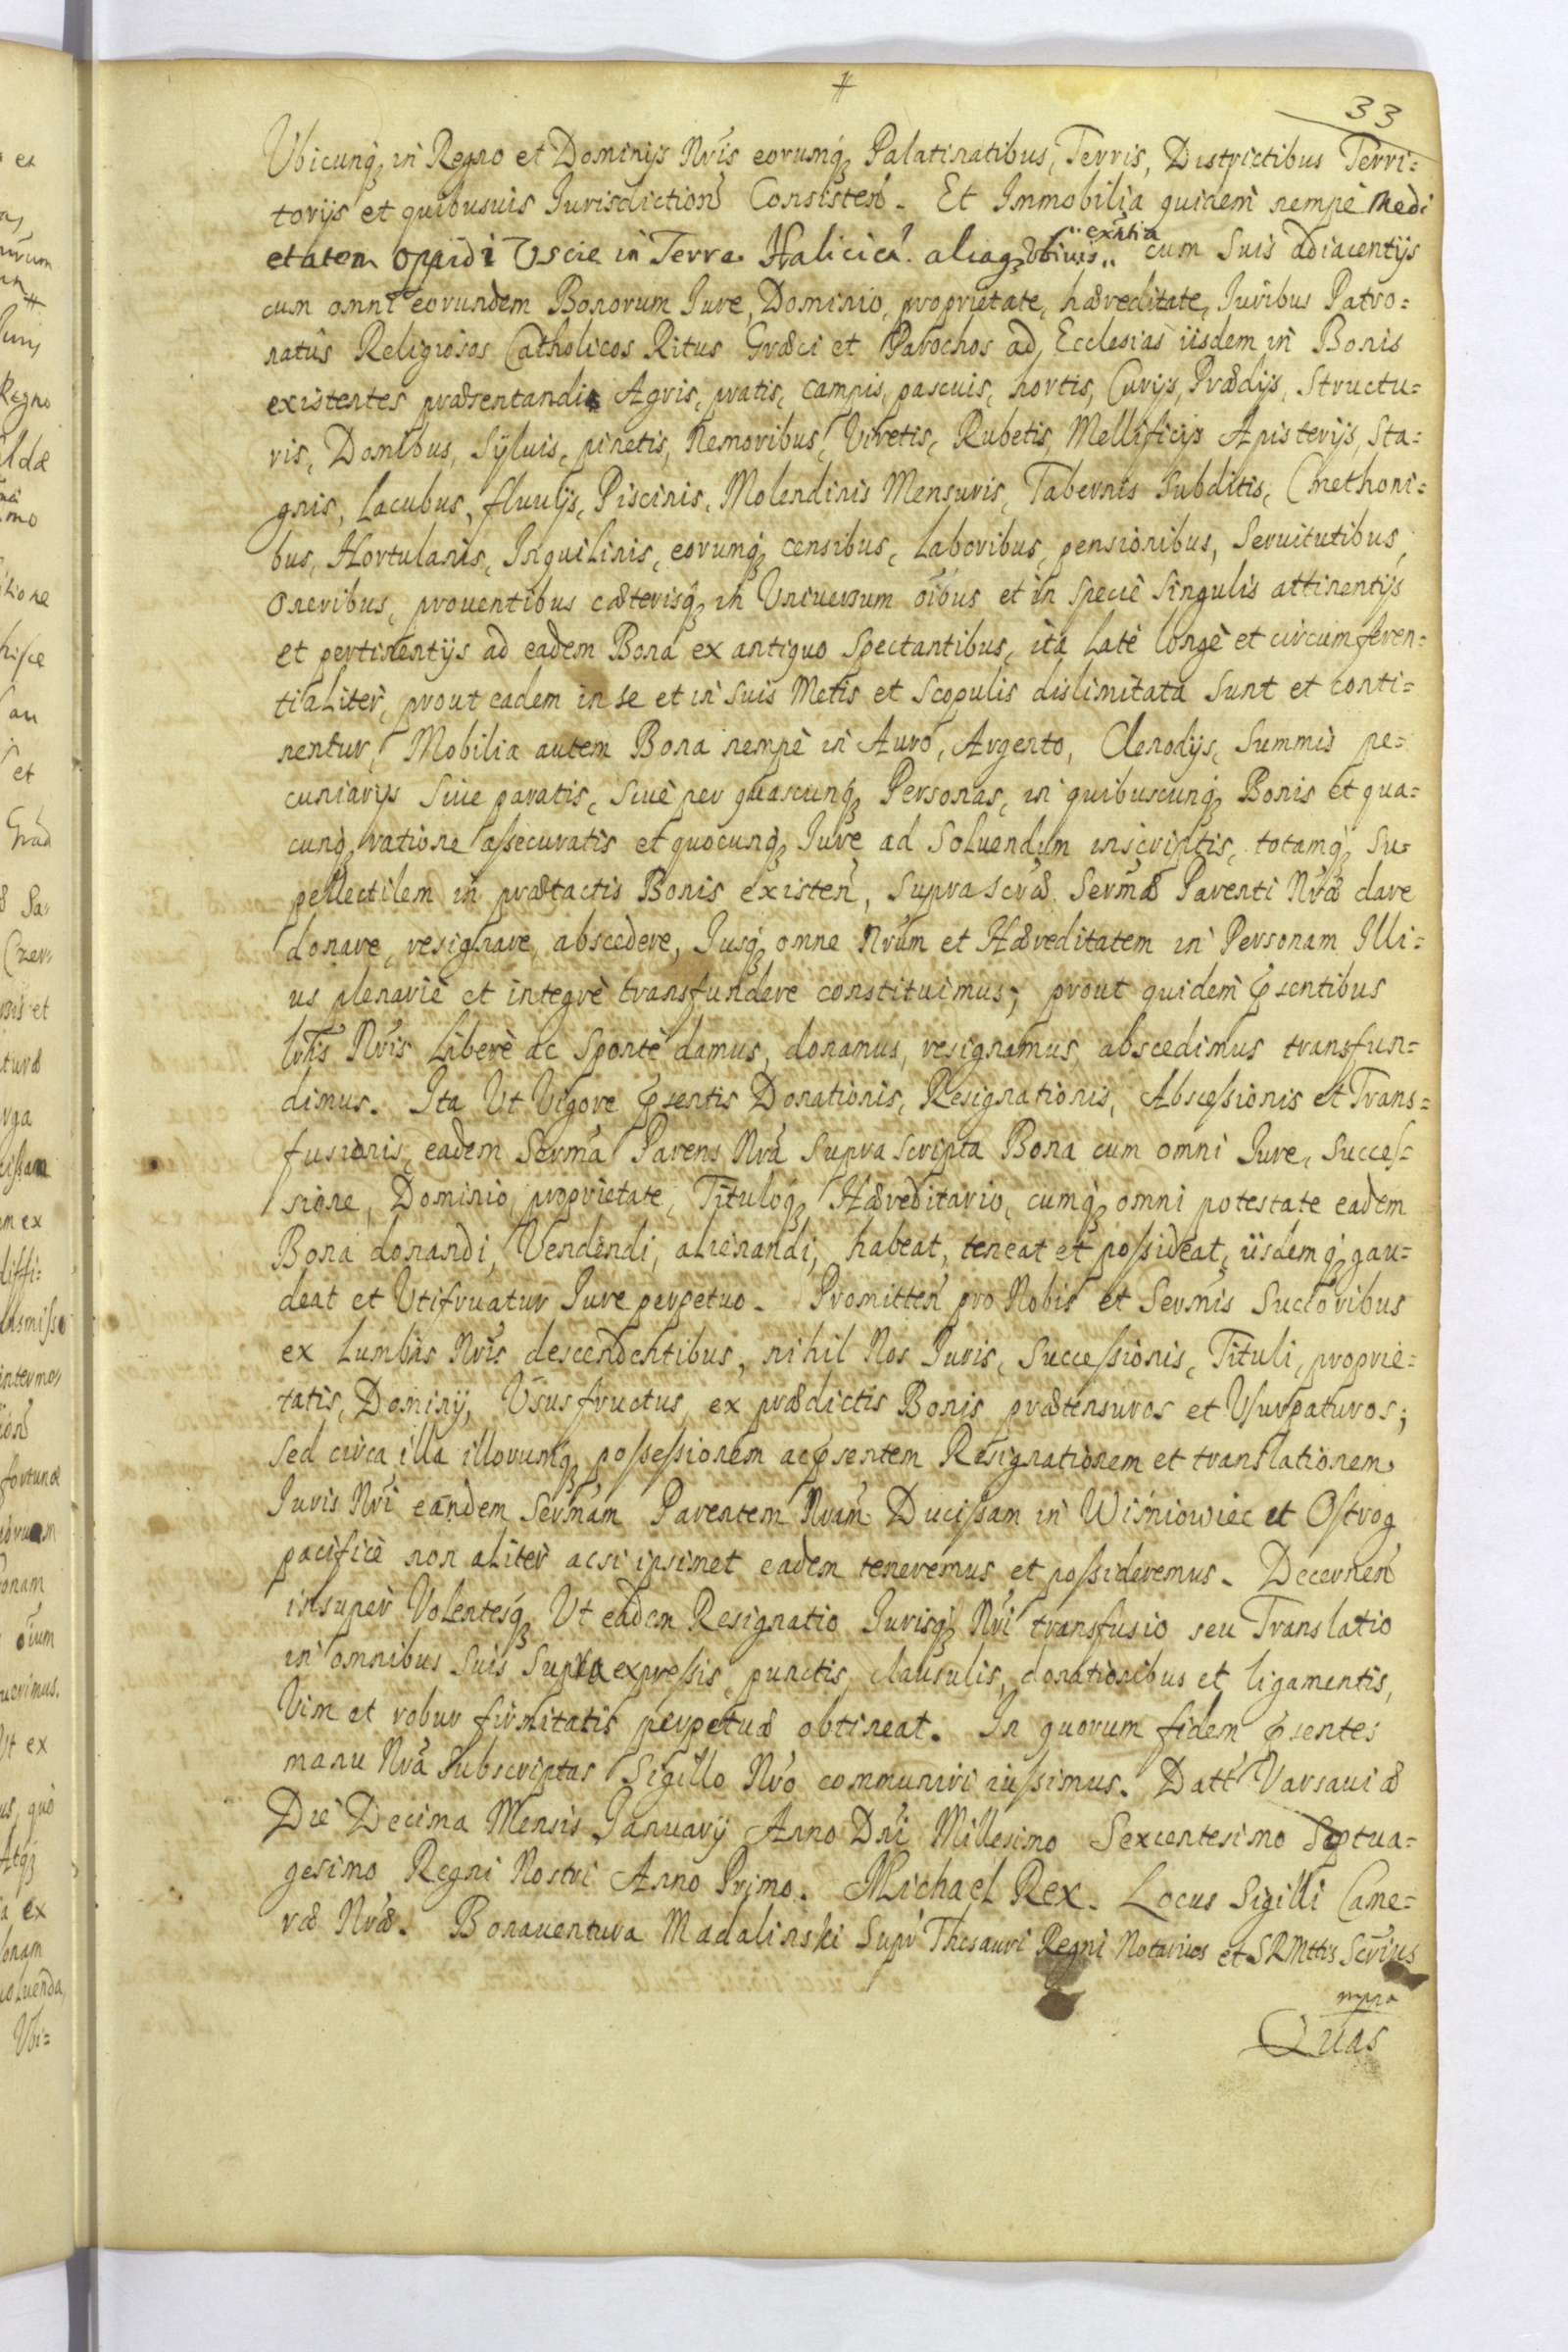 33
Ubicunq, in Regno et Dominijs Nris eorumq, Palatinatibus, Terris, Districtibus Terri=
torijs et quibusuis Jurisdiction Consisten. Et Immobilia quidem nempe Medi
etatem oppidi Uscie in Terra Halicien. aliaq, existia cum Suis adiacentijs
cum omni eorundem Bonorum Jure, Dominio, proprietate, hæreditate, Juribus Patro=
natûs Religiosos Catholicos Ritus Græci et Parochos ad Ecclesias iisdem in Bonis
existentes præsentandi Agris, pratis, campis, pascuis, hortis, Curijs, Prædijs, Structu=
ris, Domibus, Syluis, pinetis, Nemoribus, Viretis, Rubetis, Mellificijs Apisterijs, Sta=
gnis, Lacubus, fluuijs, Piscinis, Molendinis Mensuris, Tabernis Subditis, Cmethoni=
bus, Hortulanis, Inquilinis, eorumq, censibus, Laboribus, pensionibus, Seruitutibus,
Oneribus, prouentibus cæterisq, in Uniuersum oibus et in specie Singulis attinentijs
et pertinentijs ad eadem Bona ex antiquo Spectantibus, ita Latè longè et circumferen=
tialiter, prout eadem in se et in suis Metis et Scopulis dislimitata Sunt et conti=
nentur, Mobilia autem Bona nempè in Auro, Argento, Clenodijs, Summis pe=
cuniarijs Siue paratis, Siuè per quascunq, Personas, in quibuscunq, Bonis et qua=
cunq, ratione assecuratis et quocunq, Jure ad Soluendum inscriptis, totamq, Su=
pellectilem in prætactis Bonis existen, Suprascræ Sermæ Parenti Nræ dare
donare, resignare, abscedere, Jusq, omne Nrum et Hæreditatem in Personam Illi=
us plenariè et integrè transfundere constituimus; prout quidem psentibus
lris Nris Liberè ac Spontè damus, donamus, resignamus, abscedimus transfun=
dimus. Ita Ut Vigore psentis Donationis, Resignationis, Abscessionis et Trans=
fusionis, eadem Serma Parens Nra Supra scripta Bona cum omni Jure, Succes=
sione, Dominio, proprietate, Tituloq, Hæreditario, cumq, omni potestate eadem
Bona donandi, Vendendi, alienandi, habeat, teneat et possideat, iisdemq, gau=
deat et Utifruatur Jure perpetuo. Promitten pro Nobis et Sermis Succoribus
ex Lumbis Nris descendentibus, nihil Nos Juris, Successionis, Tituli, proprie=
tatis, Dominij, Usus fructus, ex prædictis Bonis prætensuros et Usurpaturos;
Sed circa illa illorumq, possessionem ac psentem Resignationem et translationem
Juris Nri eandem Sermam Parentem Nram Ducissam in Wiśniowiec et Ostrog
pacificè non aliter acsi ipsimet eadem teneremus et possideremus. Decernen
insuper Volentesq, Ut eadem Resignatio Jurisq, Nri transfusio seu Translatio
in omnibus Suis Supra expressis, punctis, clausulis, donationibus et ligamentis,
Vim et robur firmitatis perpetuæ obtineat. In quorum fidem psentes
manu Nra Subscriptas Sigillo Nro communiri iussimus. Datt Varsauiæ
Die Decima Mensis Januarij Anno Dni Millesimo Sexcentesimo Septua=
gesimo Regni Nostri Anno Primo. Michael Rex. Locus Sigilli Came=
ræ Nræ. Bonauentura Madalinski Supr Thesauri Regni Notarius et SRMttis Scrius
mpra
Quas